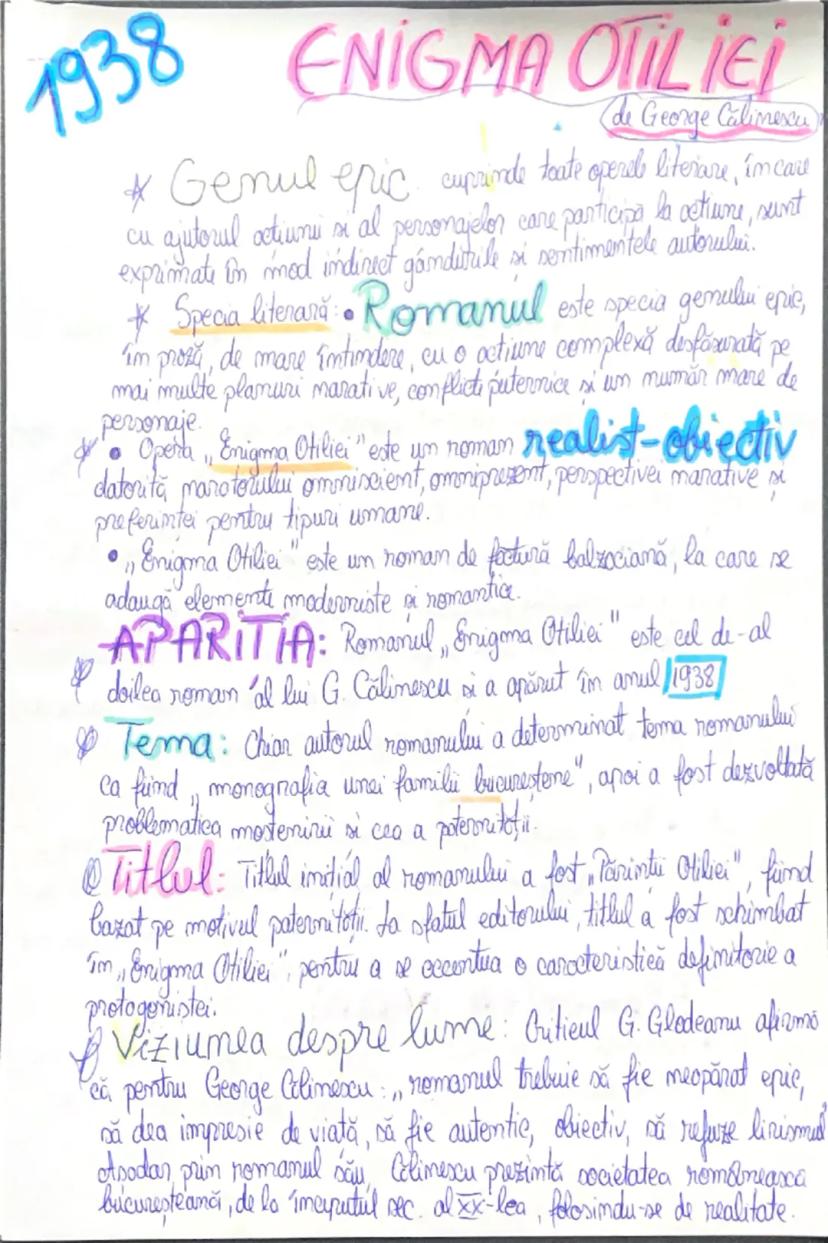 1938 ENIGMA OTILIEI
de George Călinescu
Genul epic cuprinde toate operele literare, în care
cu ajutorul acțiunii și al personajelor care participă la acțiune, sunt
exprimate în mod indirect gândurile și sentimentele autorului.
Specia literară: • Romanul este specia genului epic,
în proză, de mare întindere, cu o acțiune complexă desfășurată pe
mai multe planuri narative, conflicte puternice și un număr mare de
personaje.
• Opera „Enigma Otiliei" este un roman realist-obiectiv
datorită naratorului omniscient, omniprezent, perspectivei narative și
preferinței pentru tipuri umane.
• „Enigma Otiliei" este un roman de factură balzaciană, la care se
adaugă elemente moderniste și romantice.
APARITIA: Romanul „Enigma Otiliei" este cel de-al
doilea roman al lui G. Călinescu și a apărut în anul 1938
Tema: Chiar autorul romanului a determinat tema romanului
ca fiind „monografia unei familii bucureștene", apoi a fost dezvoltată
problematica moștenirii și cea a paternității.
Titlul: Titlul inițial al romanului a fost „Părinții Otiliei", fiind
bazat pe motivul paternității. La sfatul editorului, titlul a fost schimbat
în „Enigma Otiliei", pentru a se accentua o caracteristică definitorie a
protagonistei.
Viziunea despre lume: Criticul G. Glodeanu afirmă
că pentru George Călinescu: „romanul trebuie să fie neapărat epic,
să dea impresie de viață, să fie autentic, obiectiv, să refuze lirismul"
Așadar prin romanul său, Călinescu prezintă societatea românească
bucureșteană, de la începutul sec. al XX-lea, folosindu-se de realitate.